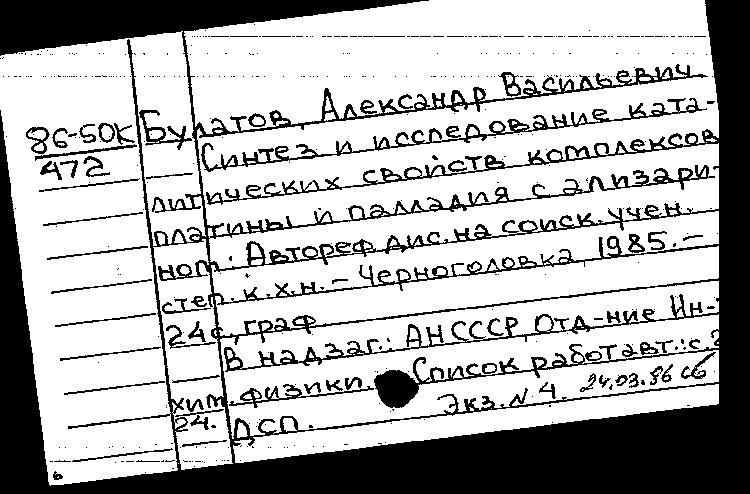 86-50К Булатов, Александр Васильевич
472 Синтез и исследование ката-
литических свойств комплексов
платины и палладия с ализари-
ном: Автореф. дис. на соиск. учен.
степ. к.х.н. – Черноголовка, 1985. –
24с., граф
В надзаг.: АН СССР, Отд-ние Ин-
хим. физики. Список работ авт.: с.
24. Экз. N 4. 24.03.86
ДСП.
6